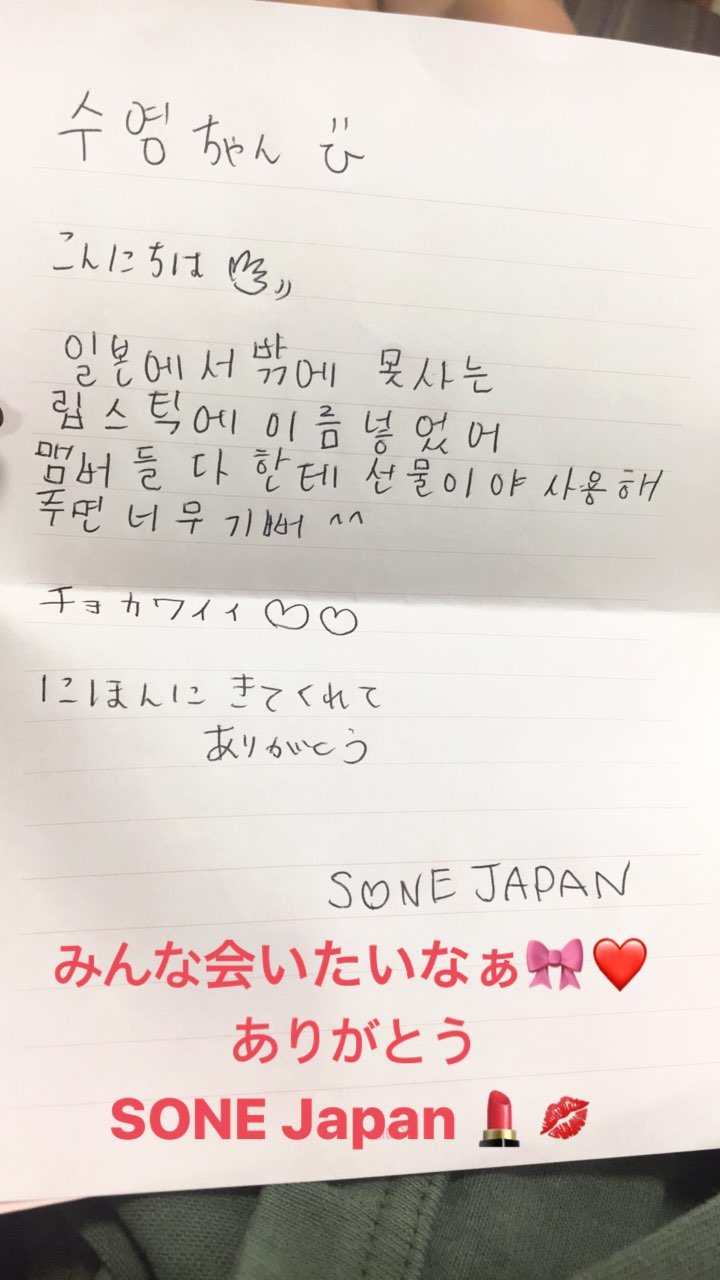 수영ちゃん
こんにちは
일본에서 밖에 못사는
립스틱에 이름 넣었어
맴버들 다 한테 선물이야 사용해
주면 너무 기뻐 ^^
チョカワイイ ♡♡
にほんに きてくれて
ありがとう
S♡NE JAPAN
みんな会いたいなぁ🎀❤️
ありがとう
SONE Japan 💄💋